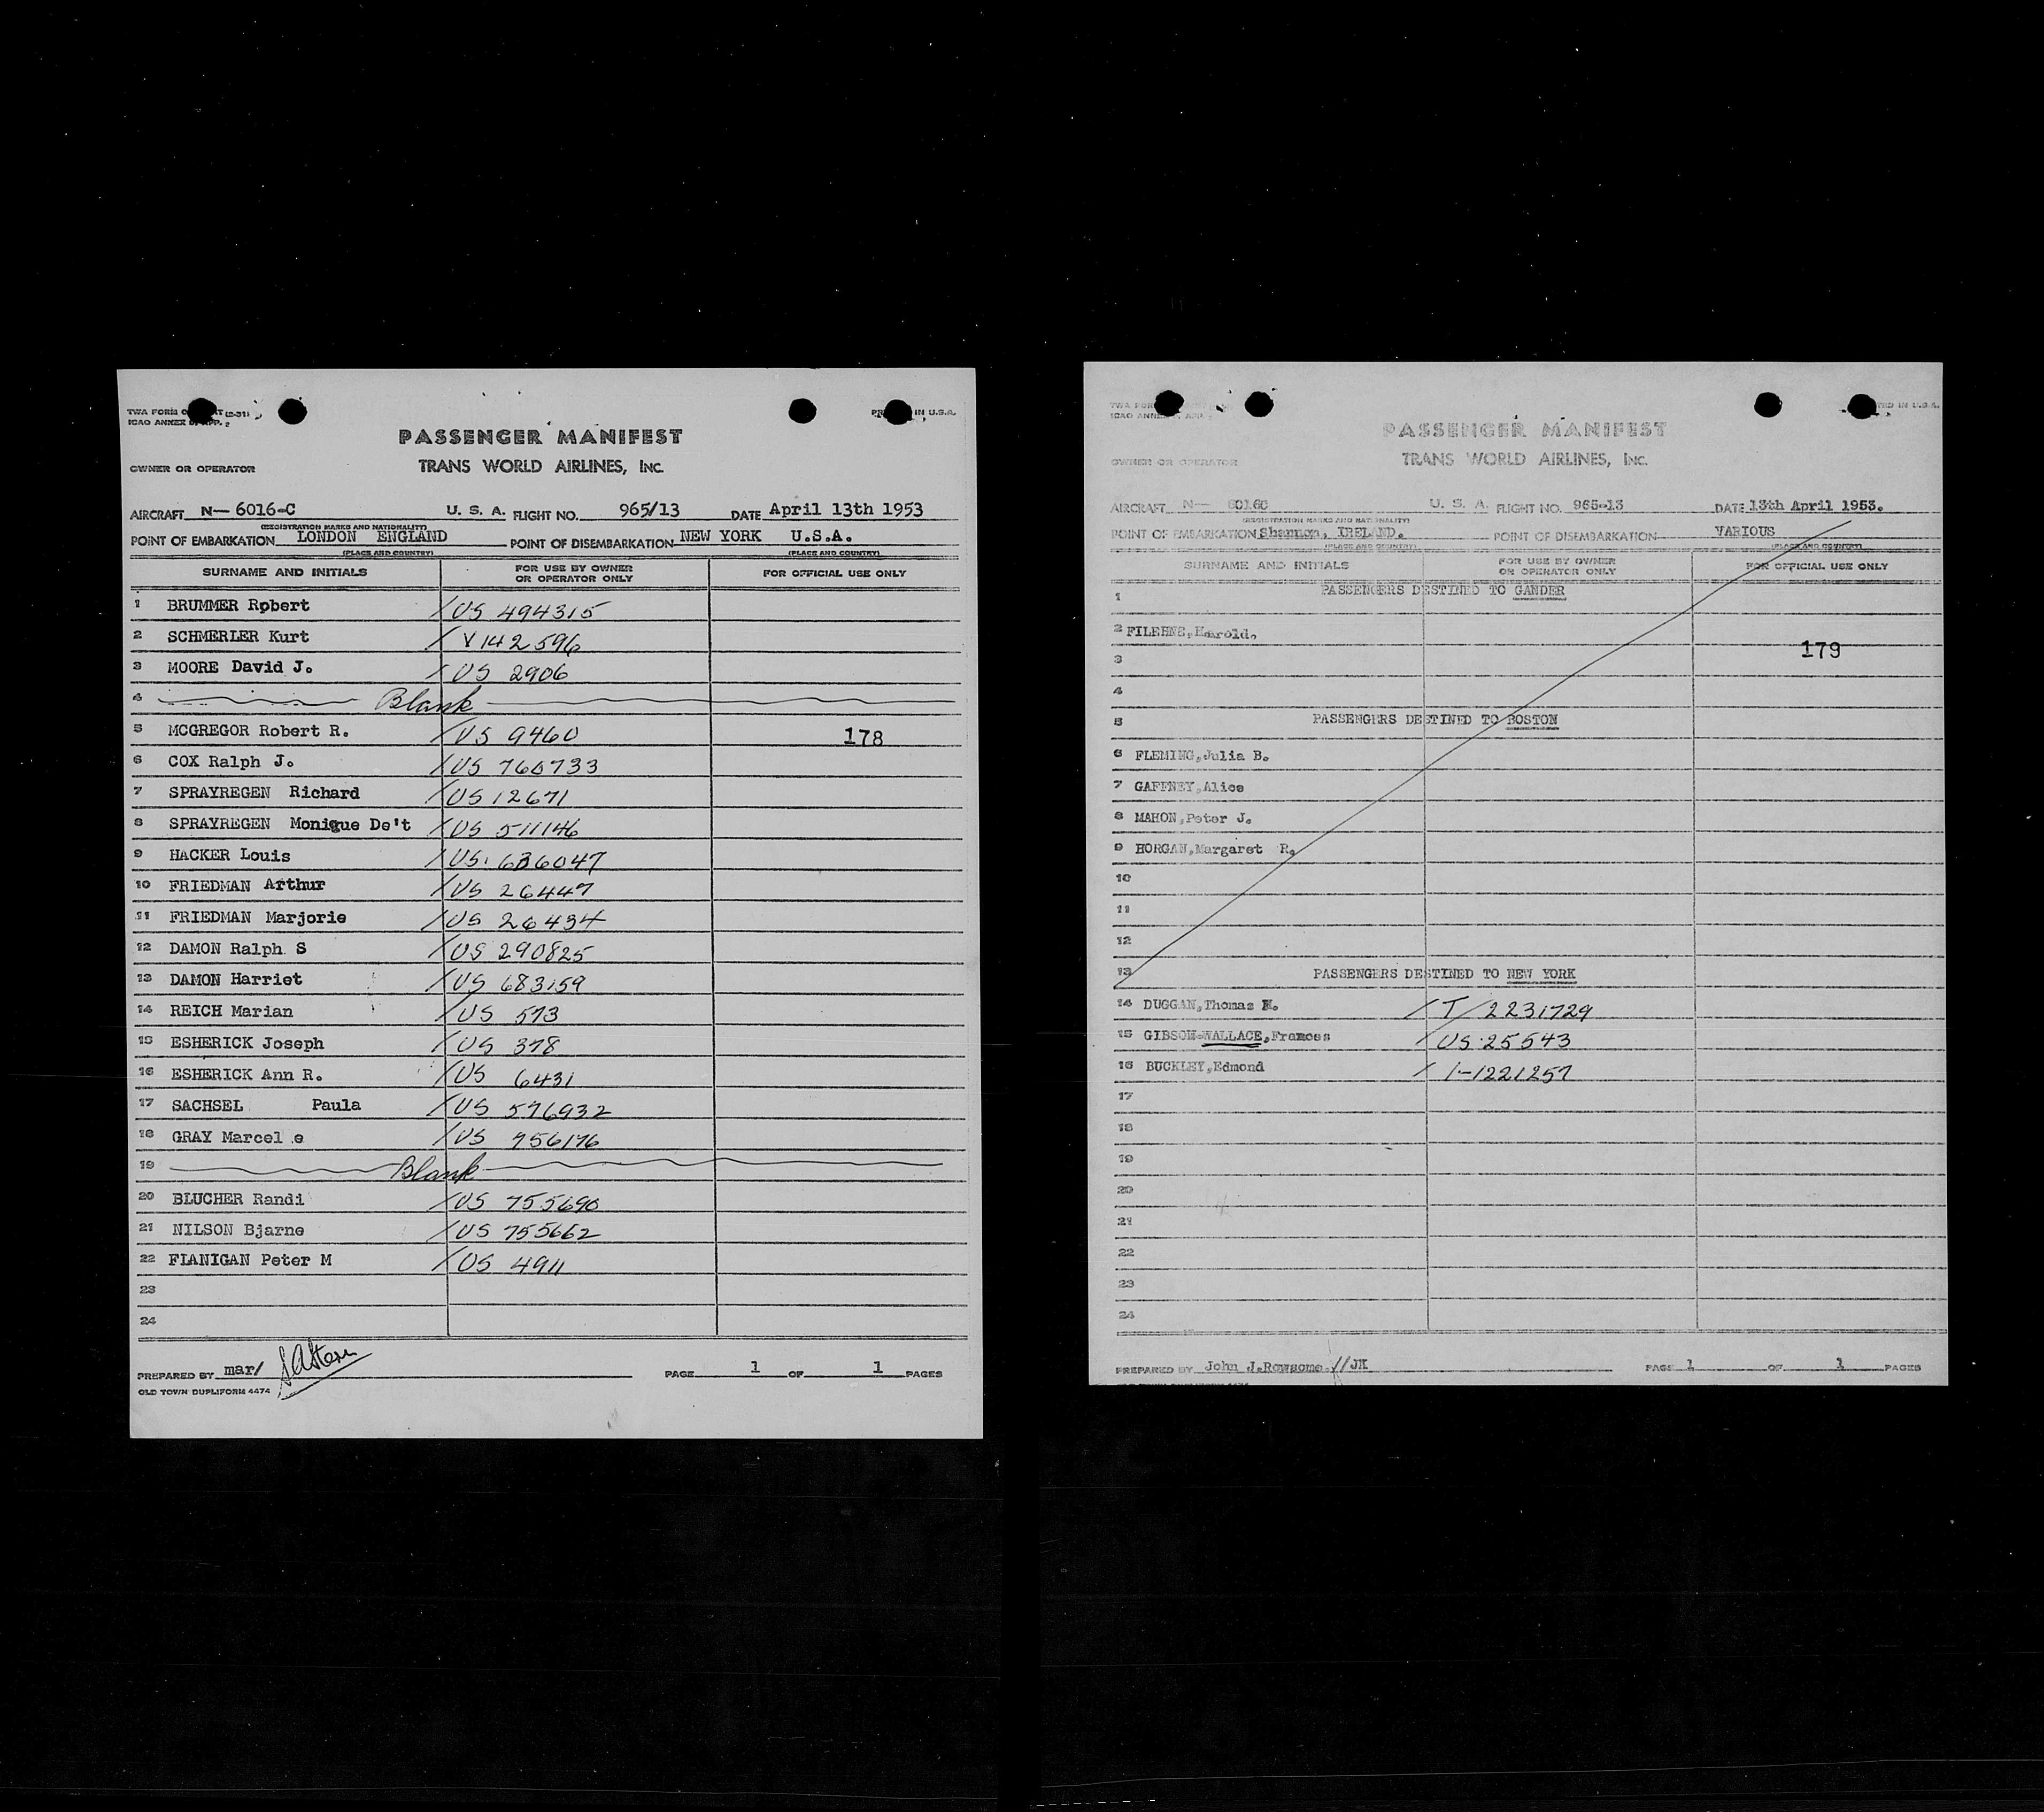 TWA FORM (2-51)
ICAO ANNEX APP. 2
IN U.S.A.
PASSENGER MANIFEST
OWNER OR OPERATOR TRANS WORLD AIRLINES, INC.
AIRCRAFT N— 6016-C U. S. A. FLIGHT NO. 965/13 DATE April 13th 1953
(REGISTRATION MARKS AND NATIONALITY)
POINT OF EMBARKATION LONDON ENGLAND POINT OF DISEMBARKATION NEW YORK U.S.A.
(PLACE AND COUNTRY) (PLACE AND COUNTRY)
SURNAME AND INITIALS FOR USE BY OWNER OR OPERATOR ONLY FOR OFFICIAL USE ONLY
1 BRUMMER Robert / US 494315
2 SCHMERLER Kurt / V142596
3 MOORE David J. / US 2906
4 Blank
5 MCGREGOR Robert R. / US 9460 178
6 COX Ralph J. / US 760733
7 SPRAYREGEN Richard / US 12671
8 SPRAYREGEN Monique De't / US 511146
9 HACKER Louis / US. 636047
10 FRIEDMAN Arthur / US 26447
11 FRIEDMAN Marjorie / US 26434
12 DAMON Ralph S / US 290825
13 DAMON Harriet / US 683159
14 REICH Marian / US 573
15 ESHERICK Joseph / US 378
16 ESHERICK Ann R. / US 6431
17 SACHSEL Paula / US 576932
18 GRAY Marcel e / US 756176
19 Blank
20 BLUCHER Randi / US 755690
21 NILSON Bjarne / US 755662
22 FLANIGAN Peter M / US 4911
23
24
PREPARED BY mar/ PAGE 1 OF 1 PAGES
OLD TOWN DUPLIFORM 4474
TWA
ICAO ANNEX
IN U.S.A.
PASSENGER MANIFEST
OWNER OR OPERATOR TRANS WORLD AIRLINES, INC.
AIRCRAFT N— 6016C U. S. A. FLIGHT NO. 965-13 DATE 13th April 1953.
(REGISTRATION MARKS AND NATIONALITY)
POINT OF EMBARKATION Shannon, IRELAND. POINT OF DISEMBARKATION VARIOUS
(PLACE AND COUNTRY) (PLACE AND COUNTRY)
SURNAME AND INITIALS FOR USE BY OWNER OR OPERATOR ONLY FOR OFFICIAL USE ONLY
1 PASSENGERS DESTINED TO GANDER
2 FILEHNE,Harold.
3 179
4
5 PASSENGERS DESTINED TO BOSTON
6 FLEMING,Julia B.
7 GAFFNEY,Alice
8 MAHON,Peter J.
9 HORGAN,Margaret R.
10
11
12
13 PASSENGERS DESTINED TO NEW YORK
14 DUGGAN,Thomas N. / T/2231729
15 GIBSON-WALLACE,Frances / US.25543
16 BUCKLEY,Edmond / 1-1221257
17
18
19
20
21
22
23
24
PREPARED BY John J.Rowsome.//JK PAGE 1 OF 1 PAGES